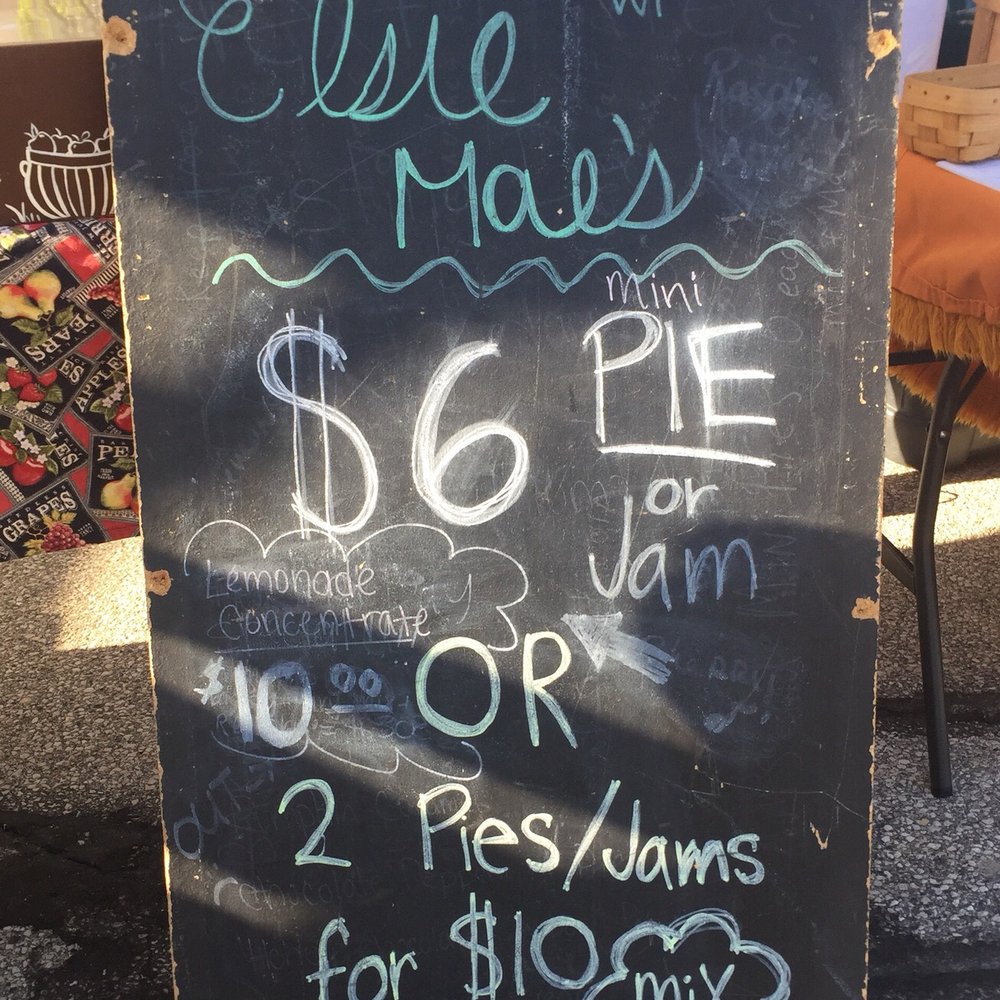 Elsie
Mae's
mini
$6 PIE
or
Jam
Lemonade
Concentrate
$10.00
OR
2 Pies/Jams
for $10
mix
PEARS
APPLES
GRAPES